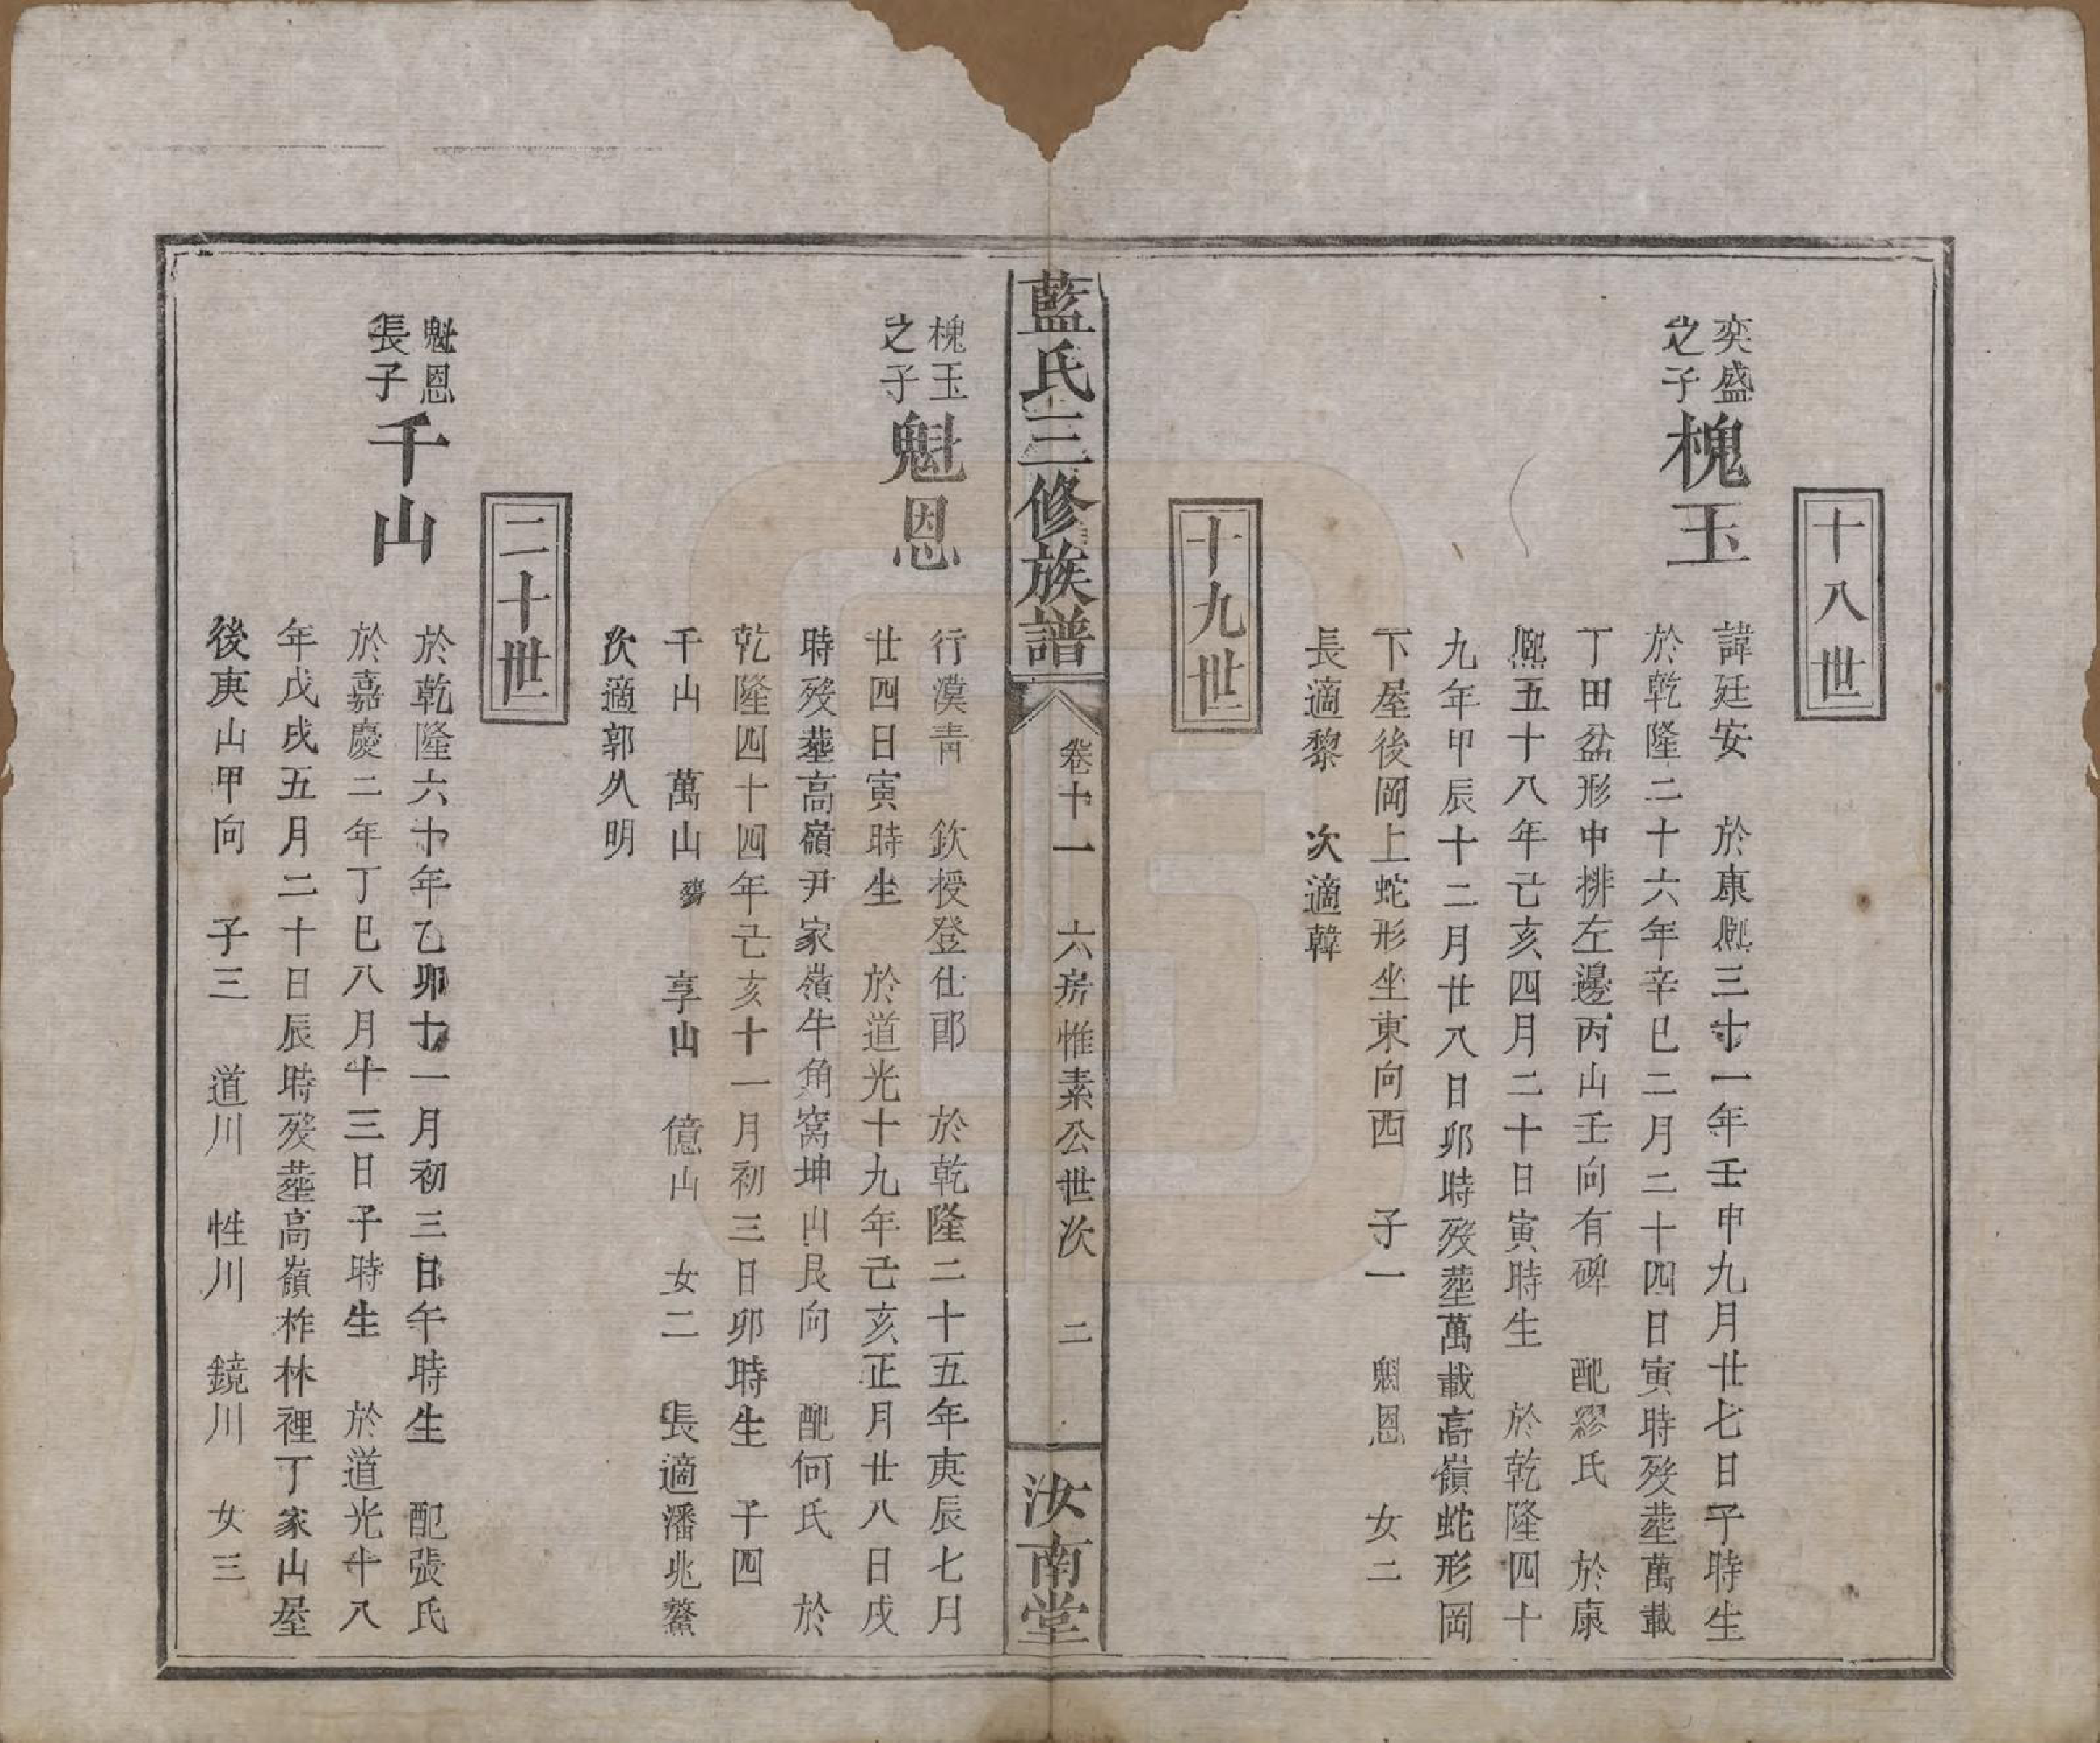 十八世
奕盛
之子
槐玉
諱廷安　於康熈三十一年壬申九月廿七日子時生
於乾隆二十六年辛巳二月二十四日寅時歿塟萬載
丁田盆形中排左邊丙山壬向有碑　配繆氏　於康
熈五十八年己亥四月二十日寅時生　於乾隆四十
九年甲辰十二月廿八日卯時歿塟萬載高嶺蛇形岡
下屋後岡上蛇形坐東向西　子一　魁恩　女二
長適黎　次適韓
十九世
藍氏三修族譜
卷十一　六房惟素公世次　二
汝南堂
槐玉
之子
魁恩
行漢青　欽授登仕郎　於乾隆二十五年庚辰七月
廿四日寅時生　於道光十九年己亥正月廿八日戌
時歿塟高嶺尹家嶺牛角窩坤山艮向　配何氏　於
乾隆四十四年己亥十一月初三日卯時生　子四
千山　萬山　享山　億山　女二　長適潘兆鰲
次適郭久明
二十世
魁恩
長子
千山
於乾隆六十年乙卯十一月初三日午時生　配張氏
於嘉慶二年丁巳八月十三日子時生　於道光十八
年戊戌五月二十日辰時歿塟高嶺柞林裡丁家山屋
後庚山甲向　子三　道川　性川　鏡川　女三